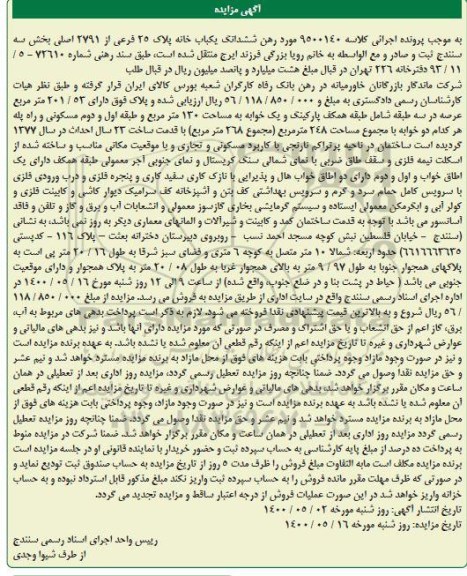 آگهی مزایده
به موجب پرونده اجرائی کلاسه ۹۵۰۰۱۴۰ مورد رهن ششدانگ یکباب خانه پلاک ۳۵ فرعی از ۲۷۹۱ اصلی بخش سه
سنندج ثبت و صادر و مع الواسطه به خانم رویا بزرگی فرزند ایرج منتقل شده است، طبق سند رهنی شماره ۷۲۶۱۰ – ۵ /
۱۱ / ۹۳ دفترخانه ۲۲۶ تهران در قبال مبلغ هشت میلیارد و پانصد میلیون ریال در قبال طلب
شرکت ماندگار بازرگانان خاورمیانه در رهن بانک رفاه کارگران شعبه بورس کالای ایران قرار گرفته و طبق نظر هیات
کارشناسان رسمی دادگستری به مبلغ ۰۰۰ / ۸۵۰ / ۱۱۸ / ۵۶ ریال ارزیابی شده و پلاک فوق دارای ۵۳ / ۲۰۱ متر مربع
عرصه در سه طبقه شامل طبقه همکف پارکینگ و یک خوابه به مساحت ۱۳۰ متر مربع و طبقه اول و دوم مسکونی و راه پله
هر کدام دو خوابه با مجموع مساحت ۲۴۸ مترمربع (مجموع ۳۶۸ متر مربع) با قدمت ساخت ۲۳ سال احداث در سال ۱۳۷۷
گردیده است ساختمان در ناحیه پرتراکم نارنجی با کاربرد مسکونی و تجاری و با موقعیت مکانی مناسب و ساخته شده از
اسکلت نیمه فلزی و سقف طاق ضربی با نمای شمالی سنگ کریستال و نمای جنوبی آجر معمولی طبقه همکف دارای یک
اطاق خواب و اول و دوم دارای دو اطاق خواب هال و پذیرایی با نازک کاری سفید کاری و پنجره فلزی و درب ورودی فلزی
با سرویس کامل حمام سرد و گرم و سرویس بهداشتی کف بتن و آشپزخانه کف سرامیک دیوار کاشی و کابینت فلزی و
کولر آبی و ابگرمکن معمولی ایستاده و سیستم گرمایشی بخاری گازسوز معمولی و انشعابات آب و برق و گاز و تلفن و فاقد
آسانسور می باشد با توجه به قدمت ساختمان کمد و کابینت و شیرآلات و المانهای معماری دیگر به روز نمی باشد، به نشانی
(سنندج – خیابان فلسطین نبش کوچه مسجد احمد نسب – روبروی دبیرستان دخترانه بعثت – پلاک ۱۱۶ – کدپستی
۶۶۱۶۶۶۳۶۳۵) حدود اربعه: شمالا ۱۰ متر متصل به کوچه ۶ متری و فضای سبز شرقا به طول ۱۶ / ۲۰ متر پی است به
پلاکهای همجوار جنوبا به طول ۹۷ / ۹ متر به بالای همجوار غربا به طول ۰۸ / ۲۰ متر به پلاک همجوار و دارای موقعیت
جنوبی می باشد ( حیاط در پشت بنا و در ضلع جنوب، واقع شده) از ساعت ۹ الی ۱۲ روز شنبه مورخ ۱۶ / ۰۵ / ۱۴۰۰ در
اداره اجرای اسناد رسمی سنندج واقع در سایت اداری از طریق مزایده به فروش می رسد. مزایده از مبلغ ۰۰۰ / ۸۵۰ / ۱۱۸
/ ۵۶ ریال شروع و به بالاترین قیمت پیشنهادی نقدا فروخته می شود. لازم به ذکر است پرداخت بدهی های مربوط به آب،
برق، گاز اعم از حق انشعاب و یا حق اشتراک و مصرف در صورتی که مورد مزایده دارای آنها باشد و نیز بدهی های مالیاتی و
عوارض شهرداری و غیره تا تاریخ مزایده اعم از اینکه رقم قطعی آن معلوم شده یا نشده باشد. به عهده برنده مزایده است
و نیز در صورت وجود مازاد وجوه پرداختی بابت هزینه های فوق از محل مازاد به برنده مزایده مسترد خواهد شد و نیم عشر
و حق مزایده نقدا وصول می گردد. ضمنا چنانچه روز مزایده تعطیل رسمی گردد، مزایده روز اداری بعد از تعطیلی در همان
ساعت و مکان مقرر برگزار خواهد شد. بدهی های مالیاتی و عوارض شهرداری و غیره تا تاریخ مزایده اعم از اینکه رقم قطعی
آن معلوم شده یا نشده باشد به عهده برنده مزایده است و نیز در صورت وجود مازاد، وجوه پرداختی بابت هزینه های فوق از
محل مازاد به برنده مزایده مسترد خواهد شد و نیم عشر و حق مزایده نقدا وصول می گردد. ضمنا چنانچه روز مزایده تعطیل
رسمی گردد مزایده روز اداری بعد از تعطیلی در همان ساعت و مکان مقرر برگزار خواهد شد. ضمنا شرکت در مزایده منوط
به پرداخت ده درصد از مبلغ پایه کارشناسی به حساب سپرده ثبت و حضور خریدار یا نماینده قانونی او در جلسه مزایده است
برنده مزایده مکلف است مابه التفاوت مبلغ فروش را ظرف مدت ۵ روز از تاریخ مزایده به حساب صندوق ثبت تودیع نماید و
در صورتی که ظرف مهلت مقرر مانده فروش را به حساب سپرده ثبت واریز نکند مبلغ مذکور قابل استرداد نبوده و به حساب
خزانه واریز خواهد شد در این صورت عملیات فروش از درجه اعتبار ساقط و مزایده تجدید می گردد.
تاریخ انتشار آگهی: روز شنبه مورخه ۰۲ / ۰۵ / ۱۴۰۰
تاریخ مزایده: روز شنبه مورخه ۱۶ / ۰۵ / ۱۴۰۰
رییس واحد اجرای اسناد رسمی سنندج
از طرف شیوا وجدی